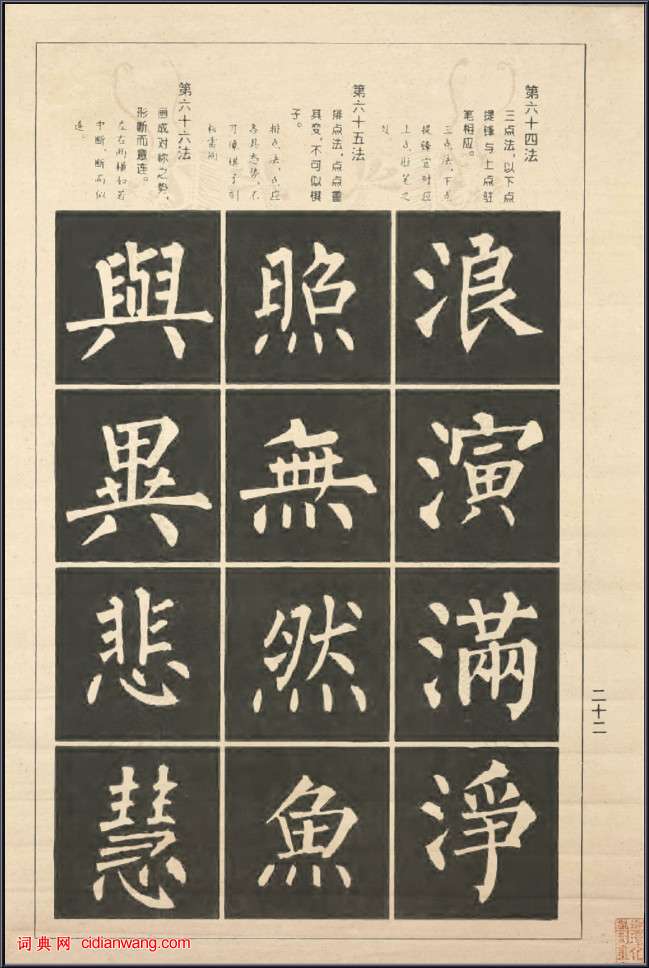 第六十四法
三点法，以下点
提锋与上点驻
笔相应。
三点法，下点
提锋宜对应
上点驻笔之
处
浪
演
满
淨
第六十五法
排点法，点点善
具变，不可似棋
子。
排点法，点应
各具态势，不
可像棋子到
照
無
然
魚
第六十六法
画成对称之势，
形断而意连。
左右两横如若
中断，断而似
连。
與
異
悲
慧
二十二
词典网 cidianwang.com